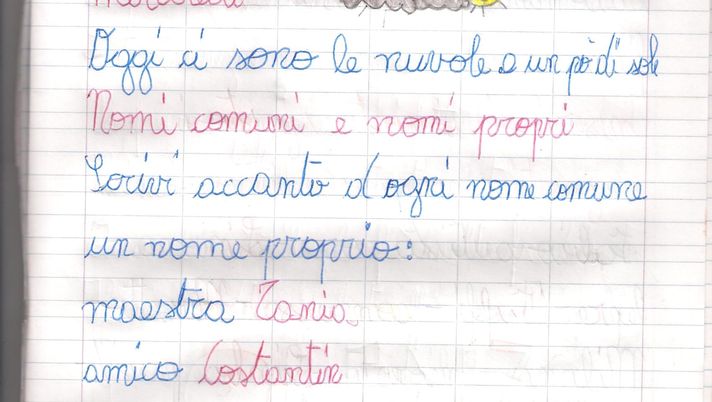 Oggi ci sono le nuvole e un pò di sole
Nomi comuni e nomi propri
Scrivi accanto ad ogni nome comune
un nome proprio:
maestra Tania
amico Costantin